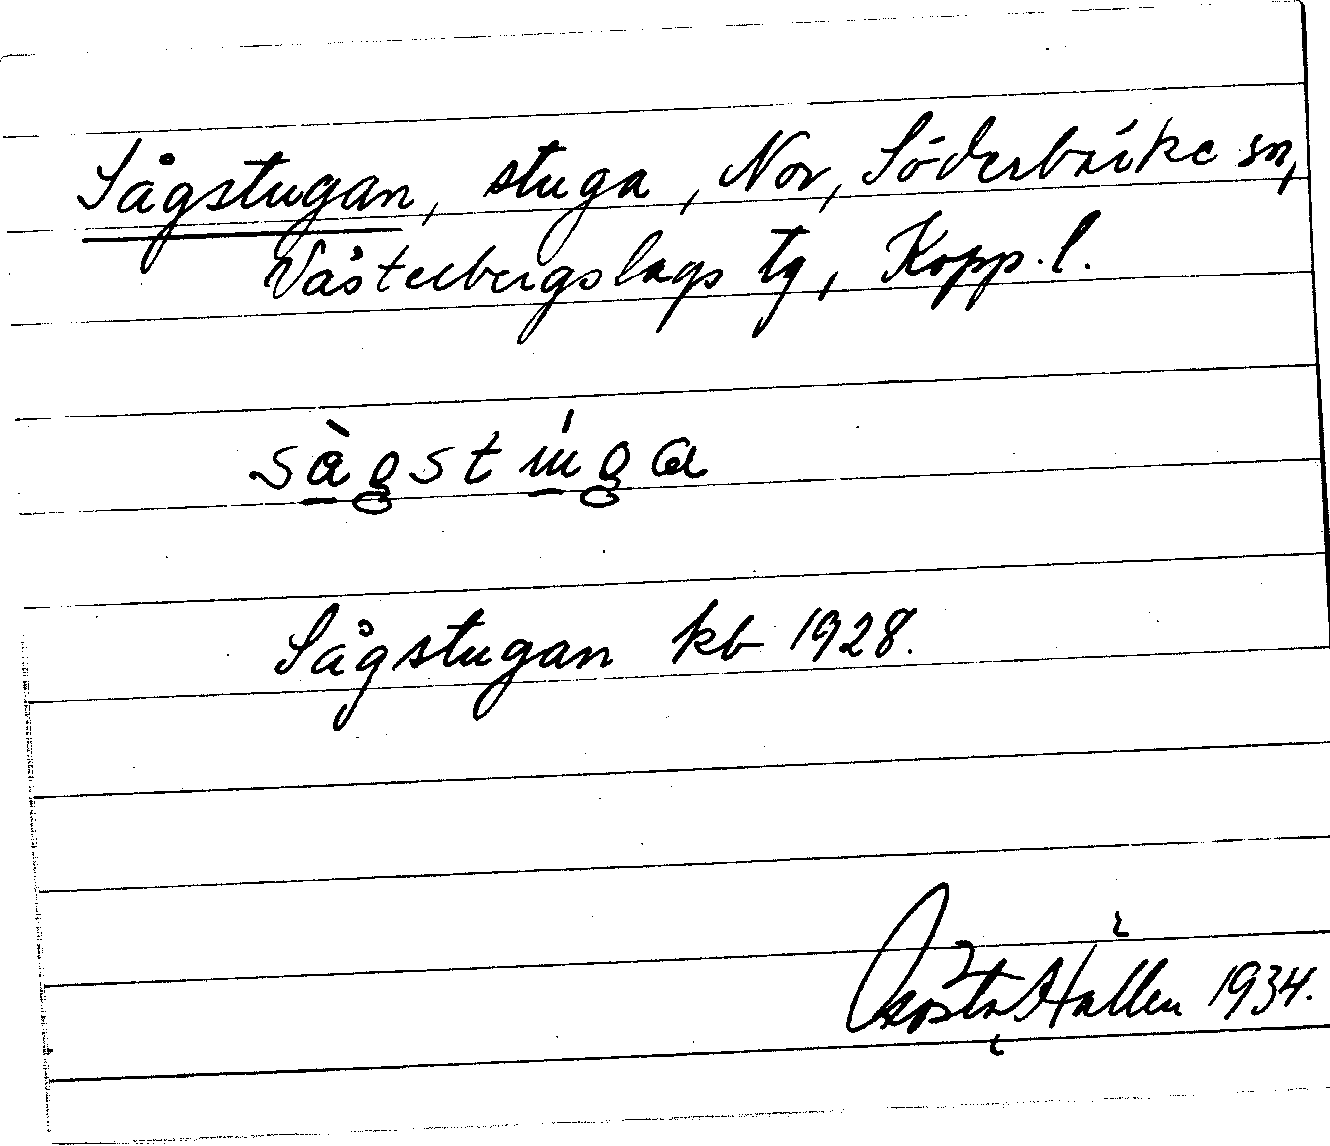 Sågstugan, stuga, Nor, Söderbärke sn,
Västerbergslags tg, Kopp. l.
sàgstúga
Sågstugan kb 1928.
Gösta Hallén 1934.